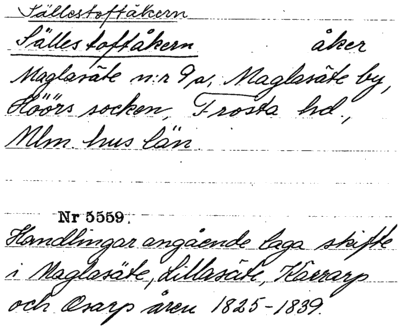 Sällestoftåkern
Sällestoftåkern åker
Maglasäte n:r 9a, Maglasäte by,
Höörs socken, Frosta hd.,
Mlm. hus län.
Nr 5559.
Handlingar angående laga skifte
i Maglasäte, Lillasäte, Käxarp
och Oxarp åren 1825-1839.